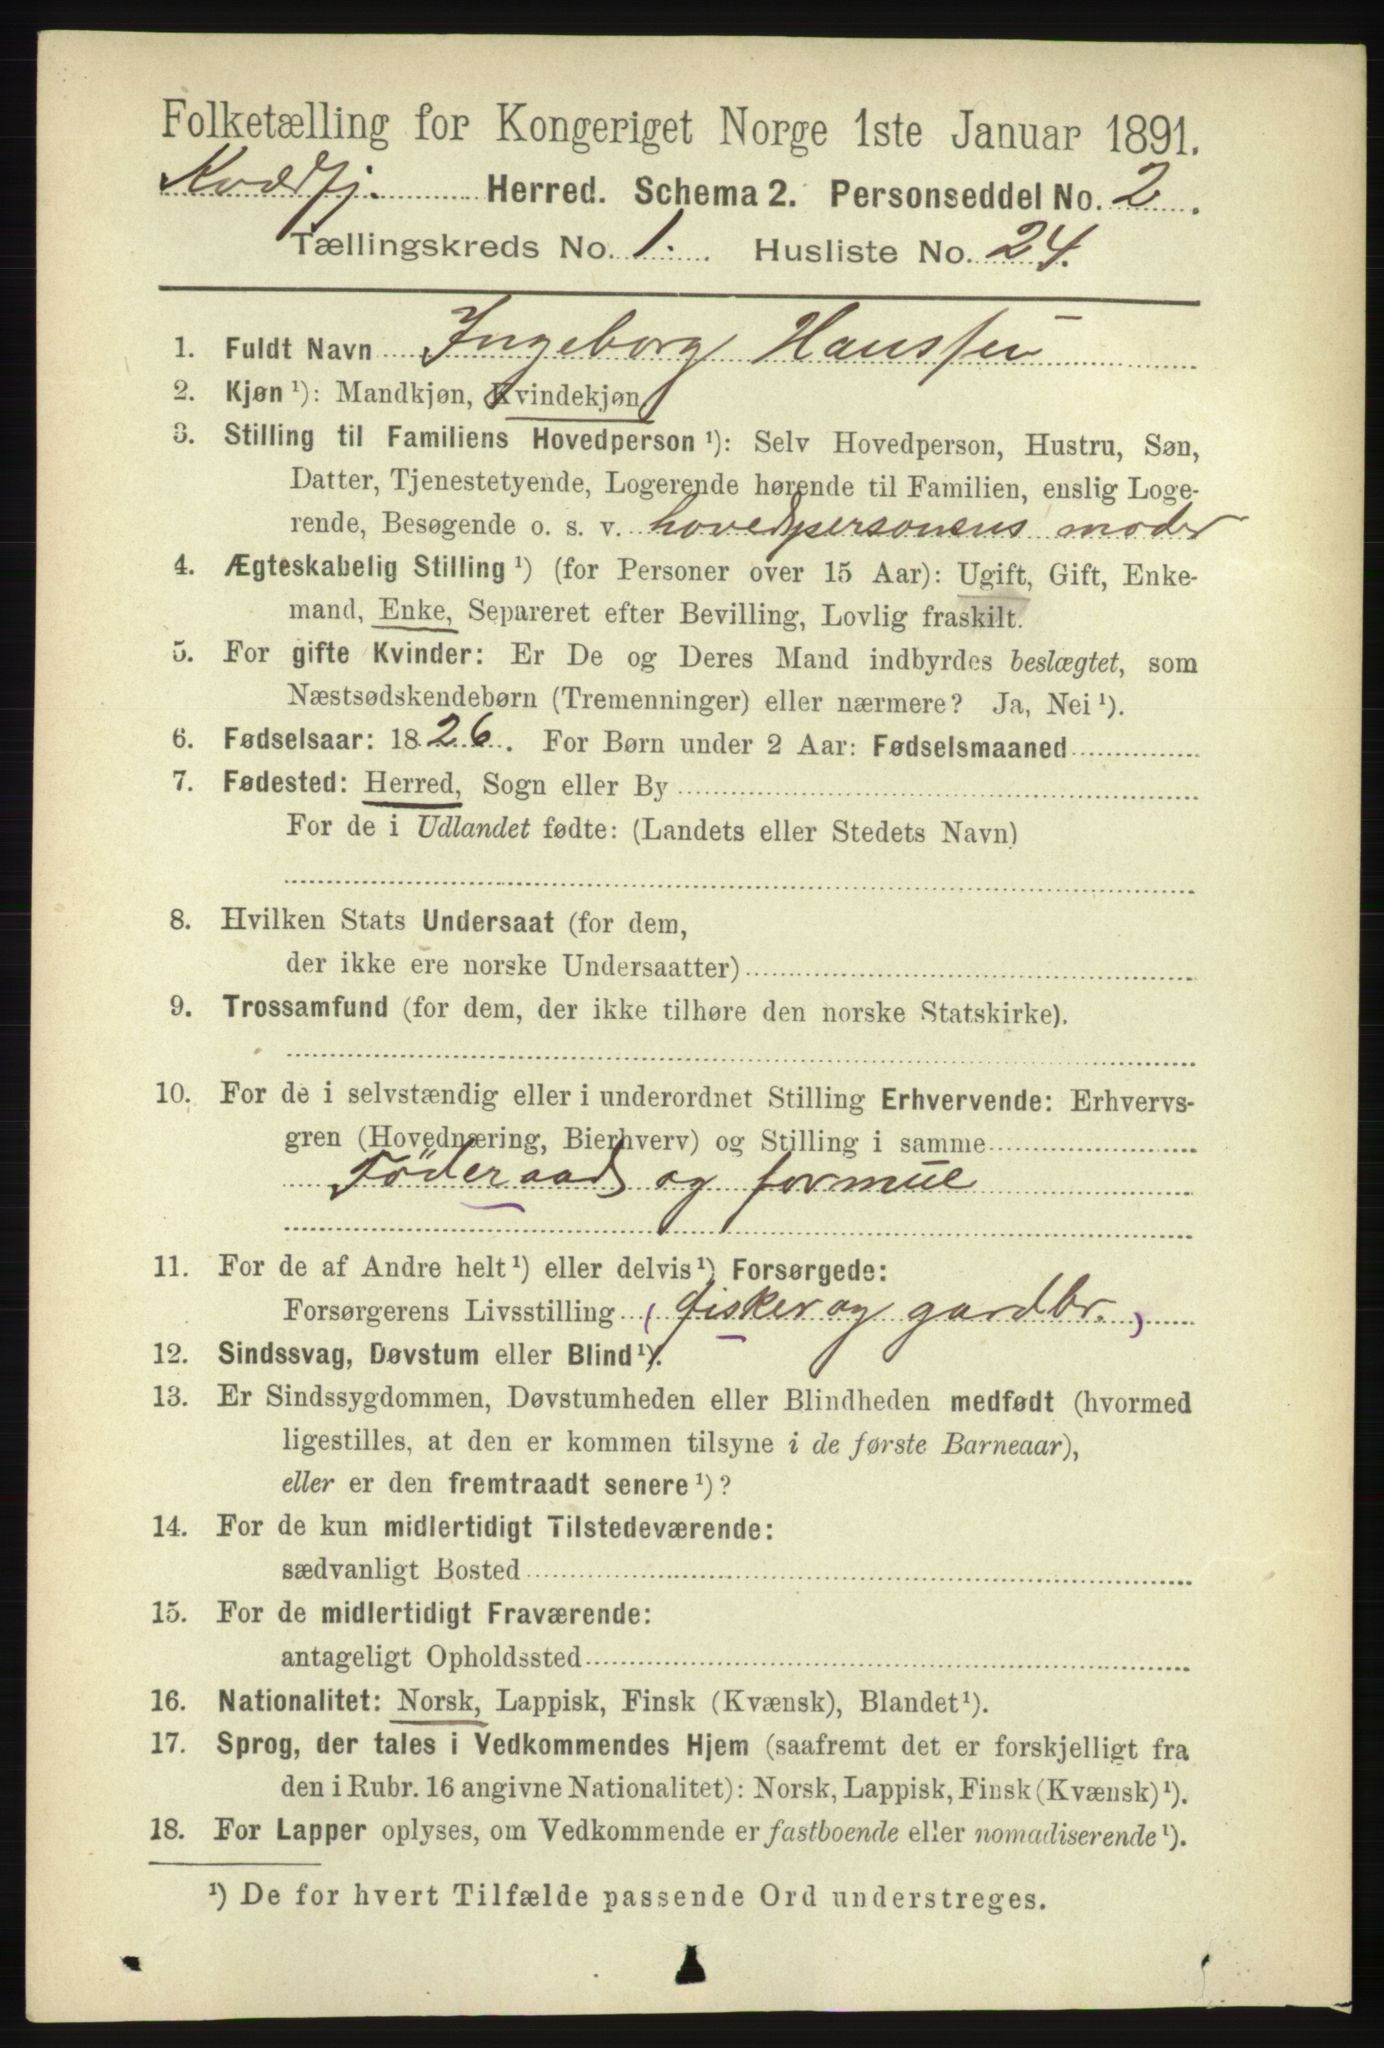 Folketælling for Kongeriget Norge 1ste Januar 1891.
Kvædfj. Herred. Schema 2. Personseddel No. 2.
Tællingskreds No. 1. Husliste No. 24.
1. Fuldt Navn Ingeborg Hanssen
2. Kjøn ¹): Mandkjøn, Kvindekjøn
3. Stilling til Familiens Hovedperson ¹): Selv Hovedperson, Hustru, Søn,
Datter, Tjenestetyende, Logerende hørende til Familien, enslig Loge-
rende, Besøgende o. s. v. hovedpersonens moder
4. Ægteskabelig Stilling ¹) (for Personer over 15 Aar): Ugift, Gift, Enke-
mand, Enke, Separeret efter Bevilling, Lovlig fraskilt.
5. For gifte Kvinder: Er De og Deres Mand indbyrdes beslægtet, som
Næstsødskendebørn (Tremenninger) eller nærmere? Ja, Nei ¹).
6. Fødselsaar: 1826. For Børn under 2 Aar: Fødselsmaaned
7. Fødested: Herred, Sogn eller By
For de i Udlandet fødte: (Landets eller Stedets Navn)
8. Hvilken Stats Undersaat (for dem,
der ikke ere norske Undersaatter)
9. Trossamfund (for dem, der ikke tilhøre den norske Statskirke).
10. For de i selvstændig eller i underordnet Stilling Erhvervende: Erhvervs-
gren (Hovednæring, Bierhverv) og Stilling i samme
Föderaad og formue
11. For de af Andre helt ¹) eller delvis ¹) Forsørgede:
Forsørgerens Livsstilling (fisker og gardbr.)
12. Sindssvag, Døvstum eller Blind ¹).
13. Er Sindssygdommen, Døvstumheden eller Blindheden medfødt (hvormed
ligestilles, at den er kommen tilsyne i de første Barneaar),
eller er den fremtraadt senere ¹)?
14. For de kun midlertidigt Tilstedeværende:
sædvanligt Bosted
15. For de midlertidigt Fraværende:
antageligt Opholdssted
16. Nationalitet: Norsk, Lappisk, Finsk (Kvænsk), Blandet ¹).
17. Sprog, der tales i Vedkommendes Hjem (saafremt det er forskjelligt fra
den i Rubr. 16 angivne Nationalitet): Norsk, Lappisk, Finsk (Kvænsk) ¹).
18. For Lapper oplyses, om Vedkommende er fastboende eller nomadiserende ¹).
¹) De for hvert Tilfælde passende Ord understreges.